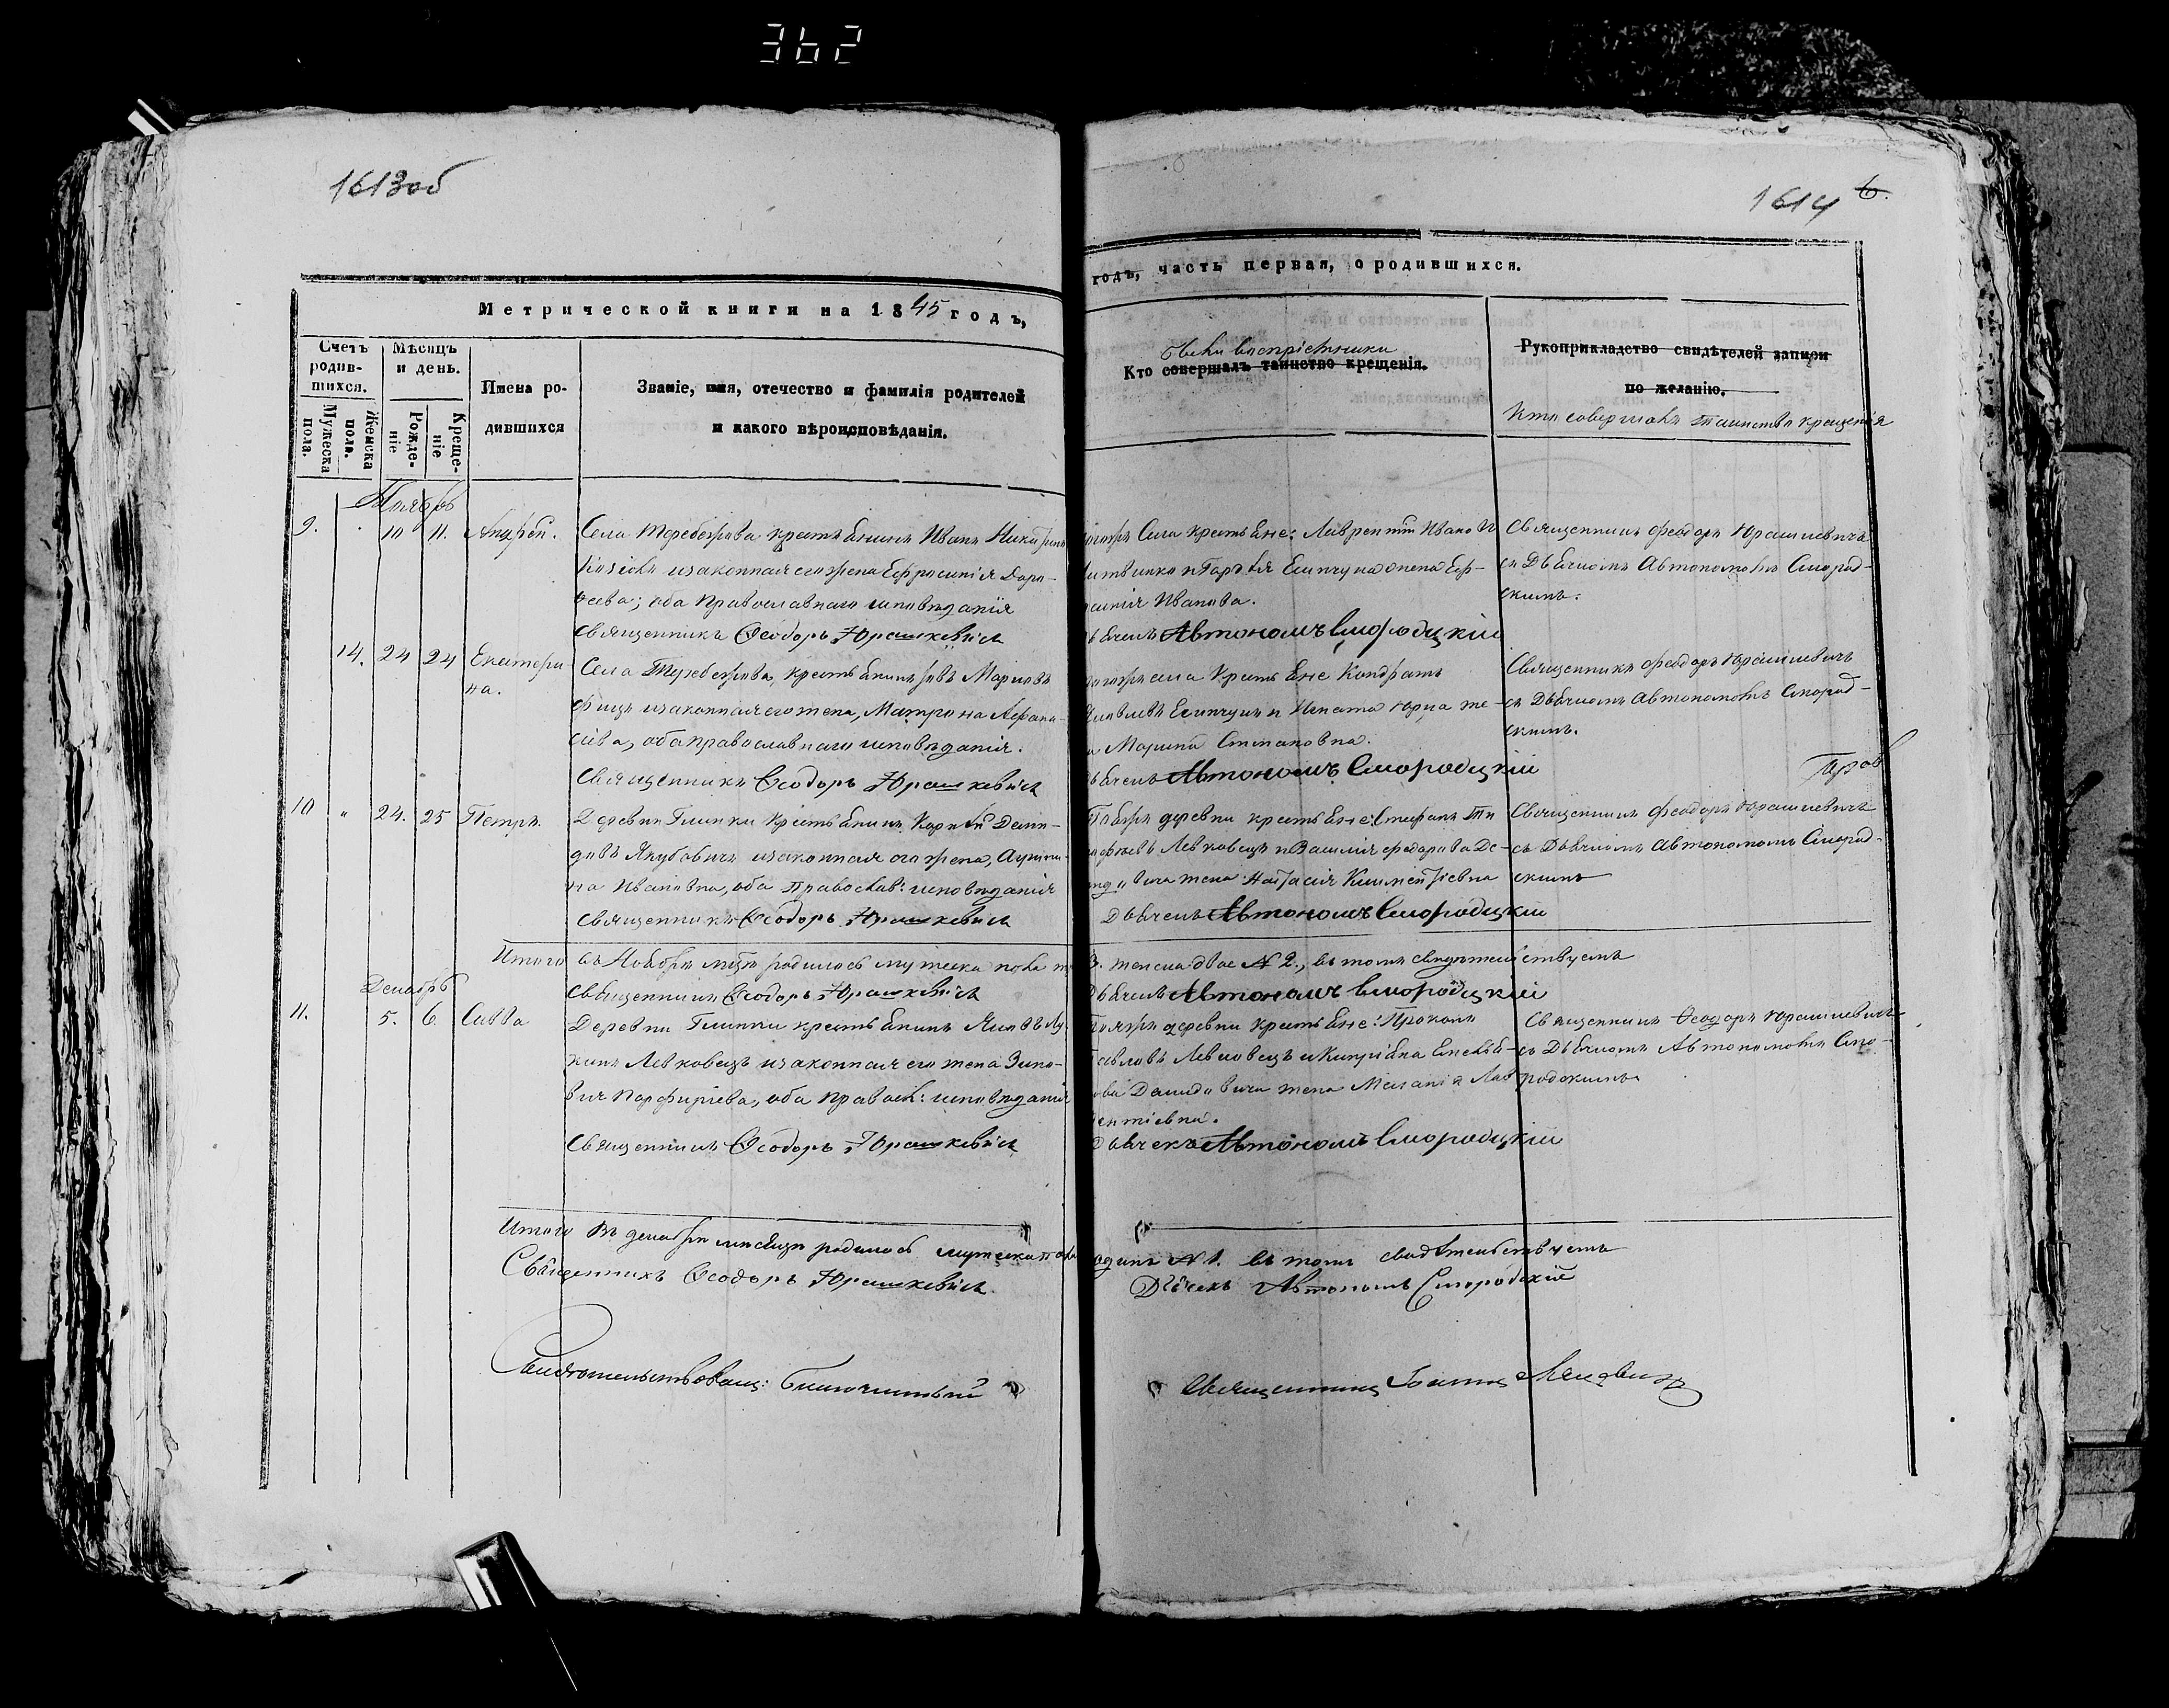 362
1613об
1614 6.
Метрической книги на 1845 годъ,
годъ, часть первая, о родившихся.
Счетъ родив-шихся.
Мужеска пола.
Женска пола.
Мѣсяцъ и день.
Рожде-ніе
Креще-ніе
Имена ро-дившихся
Званіе, имя, отечество и фамилія родителей
и какого вѣроисповѣданія.
были воспріемники
Кто совершалъ таинство крещенія.
Рукоприкладство свидѣтелей записи
по желанію.
Кто совершалъ таинство крещенія
Ноябрь
9. 10 11. Андрей.
Села Теребежова крестьянинъ Иванъ
и законная его жена Ефросинія Доро-
ѳеева; оба православнаго исповѣданія
Священникъ Ѳеодоръ Юрашкевичъ
Села крестьяне: Лаврентій Иванов
жена Еф-
Иванова.
Автономъ Смородскій
Священникъ Феодоръ Юрашкевичъ
съ Дьячкомъ Автономомъ Смород-
скимъ.
14. 24 24 Екатери-
на.
Села Теребежова, крестьянинъ
и законная его жена, Матрона Афана-
сіева, оба православнаго исповѣданія.
Священникъ Ѳеодоръ Юрашкевичъ
села Крестьяне Кондратъ
и Игната Юрца же-
Марина Степановна.
Автономъ Смородскій
Священникъ Феодоръ Юрашкевичъ
съ Дьячкомъ Автономомъ Смород-
скимъ.
10 " 24. 25 Петръ.
Деревни Глинки Крестьянинъ Корнѣй Деми-
довъ Якубовичъ и законная его жена,
на Ивановна, оба Православ: исповѣданія
Священникъ Ѳеодоръ Юрашкевичъ
деревни крестьяне: Стефанъ Ти
Левковецъ и Василія Федорова Де-
жена Настасія Климентіевна
Дьячекъ Автономъ Смородскій
Священникъ Феодоръ Юрашкевичъ
съ Дьячкомъ Автономомъ Смород-
скимъ
Итого въ Ноябрѣ мцѣ родилось мужеска пола
3. женска двое № 2., въ томъ свидѣтельствуемъ
Священникъ Ѳеодоръ Юрашкевичъ
Дьячекъ Автономъ Смородскій
Декабрь
11. 5. 6. Савва
Деревни Глинки крестьянинъ Яковъ Лу-
кинъ Левковецъ и законная его жена Зино-
вія Порфиріева, оба Православ: исповѣданія
Священникъ Ѳеодоръ Юрашкевичъ
деревни крестьяне: Прокопъ
Павловъ Левковецъ и Кипріяна Емелья-
нова Демидовича жена Меланія Лав
рентіевна.
Дьячекъ Автономъ Смородскій
Священникъ Ѳеодоръ Юрашкевичъ
съ Дьячкомъ Автономомъ Смо-
родскимъ
Итого въ декабрѣ мѣсяцѣ родилось мужеска пола
одинъ № 1. въ томъ свидѣтельствуемъ
Священникъ Ѳеодоръ Юрашкевичъ.
Дьячекъ Автономъ Смородскій
Свидѣтельствовалъ: Благочинный
Священникъ Іоаннъ